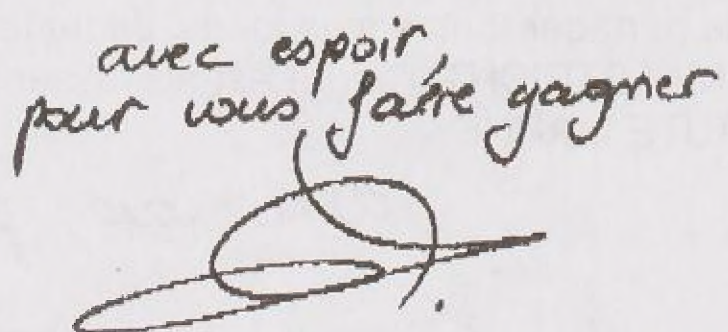 avec espoir,
pour vous faire gagner